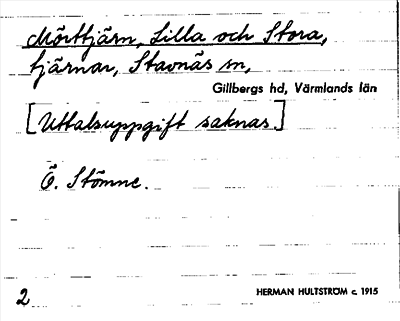 Mörttjärn, Lilla och Stora,
tjärnar, Stavnäs sn,
Gillbergs hd, Värmlands län
[Uttalsuppgift saknas.]
Ö. Stömne.
2
HERMAN HULTSTRÖM c. 1915